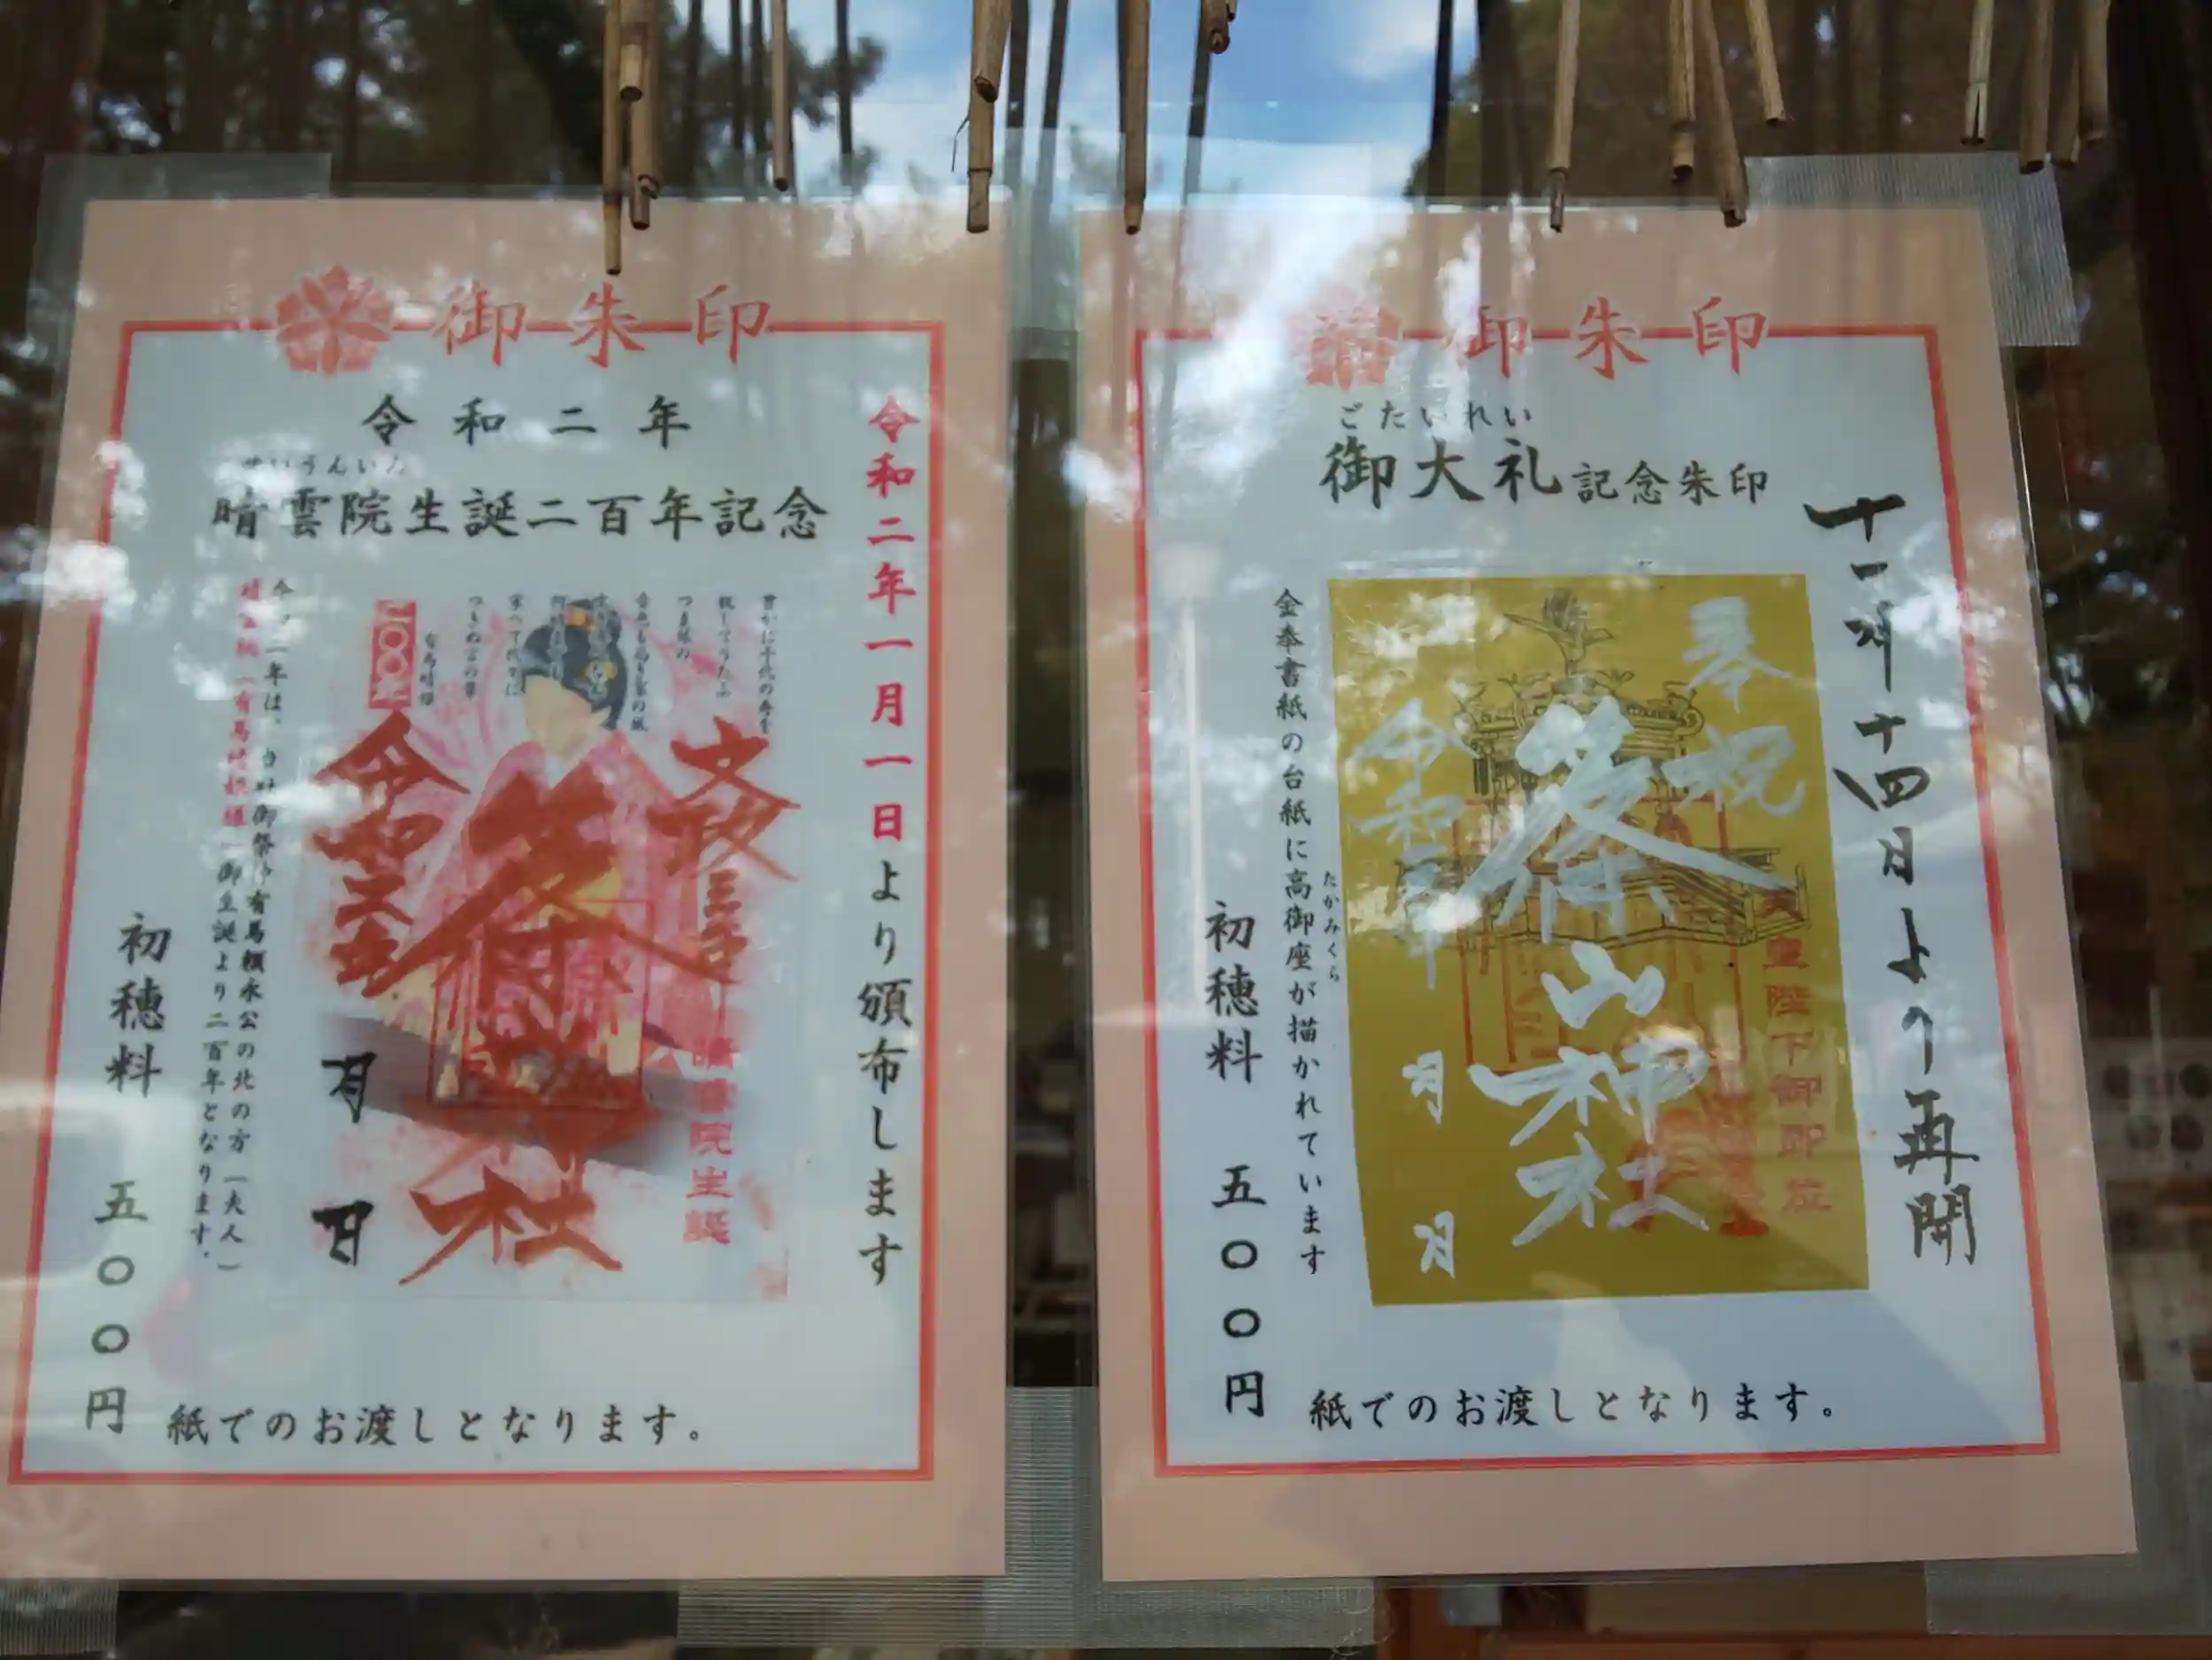 御朱印
令和二年
せいうんいん
晴雲院生誕二百年記念
令和二年一月一日より頒布します
文政三年
晴雲院生誕
社
月
日
令和二年は、当社御祭神有馬頼永公の北の方(夫人)
御生誕より二百年となります。
初穂料 五〇〇円
紙でのお渡しとなります。
御朱印
ごたいれい
御大礼記念朱印
十一月十四日より再開
奉祝
皇陛下御即位
篠山神社
令和元年
月
日
たかみくら
金奉書紙の台紙に高御座が描かれています
初穂料 五〇〇円
紙でのお渡しとなります。